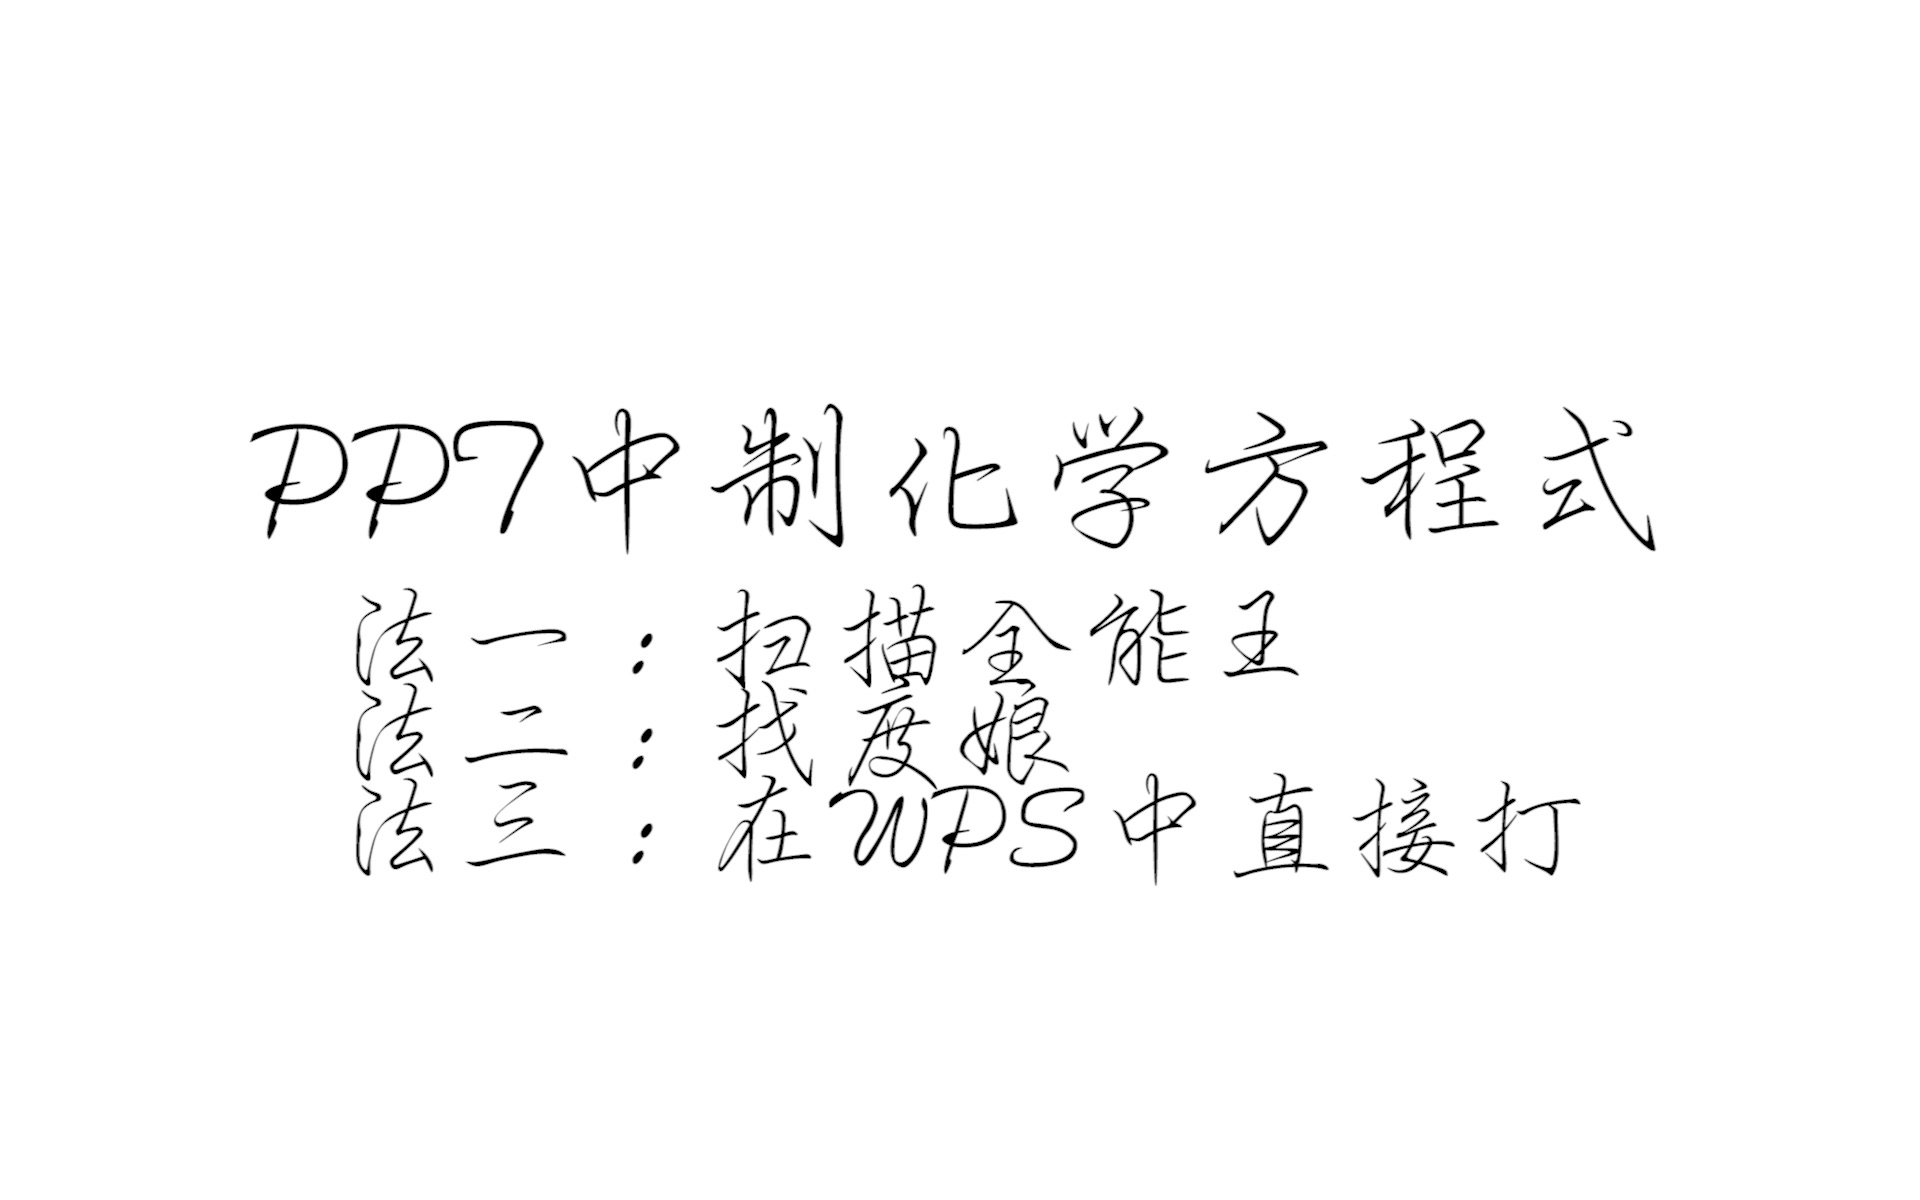 PPT中制化学方程式
法一：扫描全能王
法二：找度娘
法三：在WPS中直接打